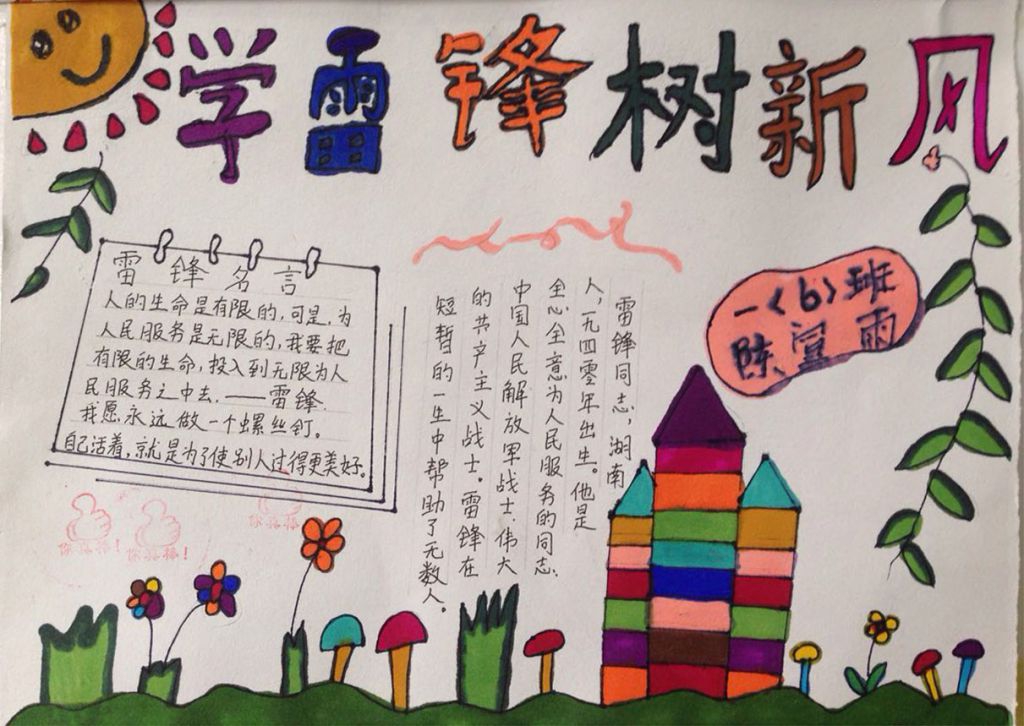 学雷锋树新风
雷锋名言
人的生命是有限的,可是,为
人民服务是无限的,我要把
有限的生命,投入到无限为人
民服务之中去.——雷锋.
我愿永远做一个螺丝钉。
自己活着,就是为了使别人过得更美好。
雷锋同志,湖南
人,一九四零年出生。他是
全心全意为人民服务的同志,
中国人民解放军战士,伟大
的共产主义战士。雷锋在
短暂的一生中帮助了无数人。
一<6>班
陈宣雨
你真棒!
你真棒!
你真棒